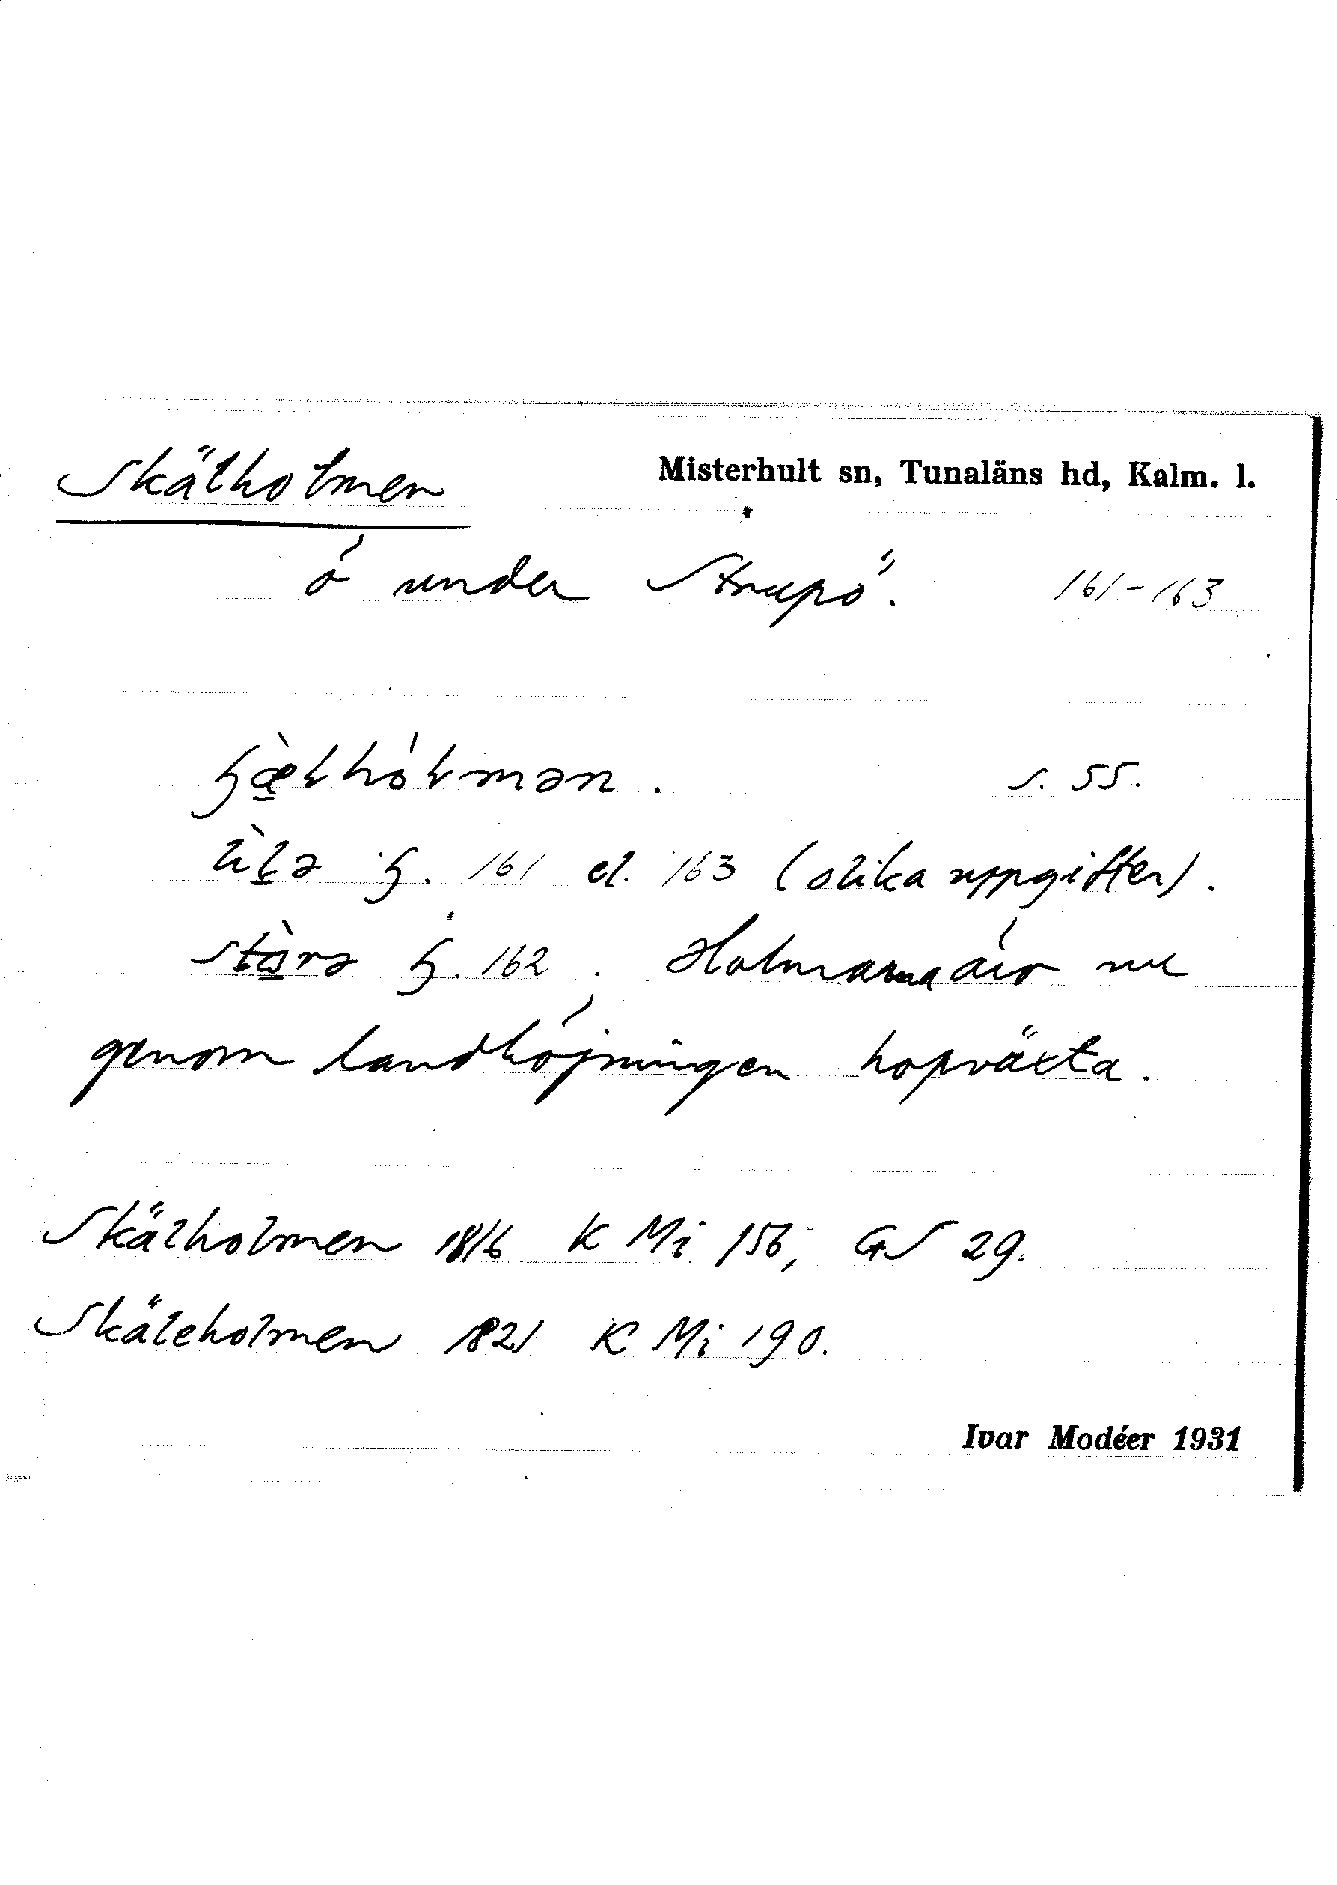 Skälholmen Misterhult sn, Tunaläns hd, Kalm. l.
ö under Strupö. 161-163
ɧæ̀lhólmən. s. 55.
lìlə ɧ. 161 el. 163 (olika uppgifter).
stòrə ɧ. 162. Holmarna äro nu
genom landhöjningen hopväxta.
Skälholmen 1816 K Mi 156; GS 29.
Skäleholmen 1821 K Mi 190.
Ivar Modéer 1931